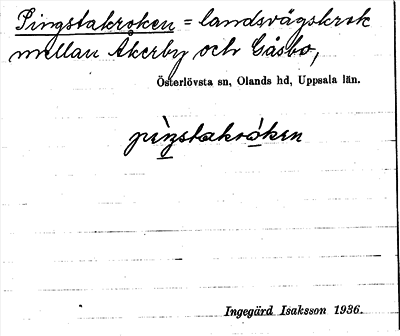 Pingstakroken = landsvägskrok
mellan Åkerby och Gåsbo,
Österlövsta sn, Olands hd, Uppsala län.
pìŋstakróken
Ingegärd Isaksson 1936.